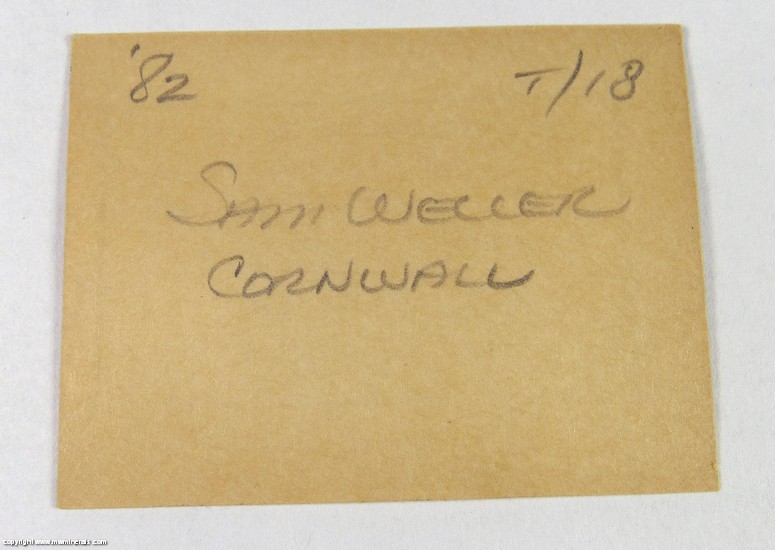 '82 T/18
SAM WELLER
CORNWALL
copyright www.mwminerals.com